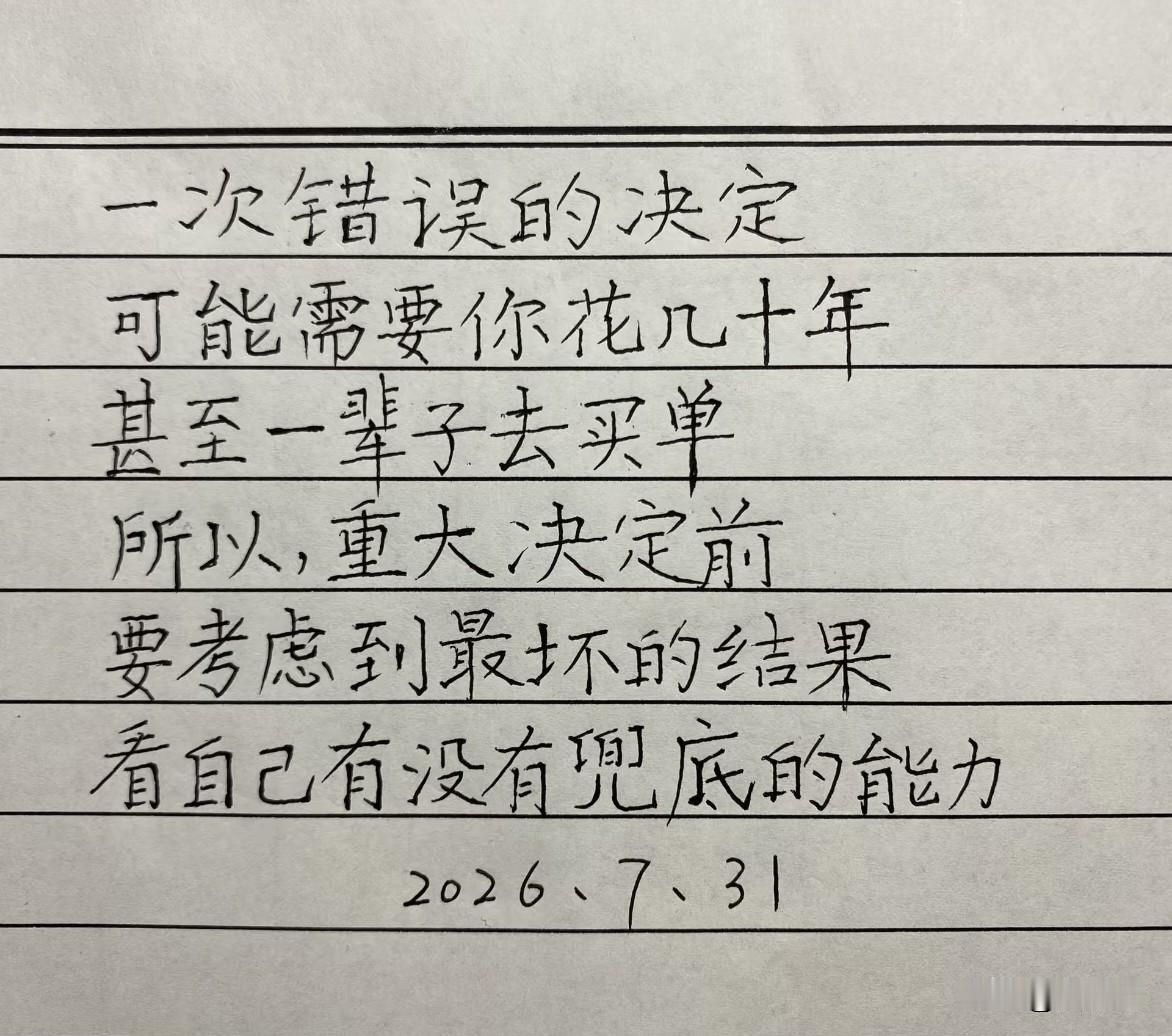 一次错误的决定
可能需要你花几十年
甚至一辈子去买单
所以,重大决定前
要考虑到最坏的结果
看自己有没有兜底的能力
2026、7、31